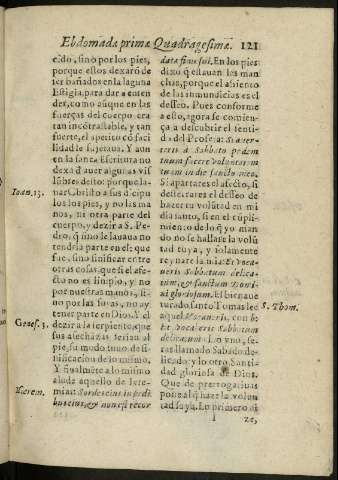 Ebdomada primæ Quadragesimæ. 121
cido, sino por los pies,
porque estos dexarõ de
ser bañados en la laguna
Estigia, para dar a enten
der, como aũque en las
fuerças del cuerpo era
tan incõtrastable, y tan
fuerte, el apetito cõ faci
lidad le sujetaua. Y aun
en la santa Escritura no
dexa d'auer algunas vis
lũbres desto: porque la-
uar Christo a sus discipu
los los pies, y no las ma
nos, ni otra parte del
cuerpo, y dezir a S. Pe-
dro, q̃ sino le lauaua no
tendria parte en el: que
fue, sino sinificar entre
otras cosas, que si el afe-
cto no es limpio, y no
por nuestras manos, si-
no por las suyas, no ay
tener parte en Dios. Y el
dezir a la serpiente, que
sus asechãças serian al
pie, su modo tuuo de si-
nificacion de lo mismo.
Y finalmẽte a lo mismo
aluda aquello de Iere-
mias: Sordes eius in pedi
bus eius, & non est recor
Ioan. 13.
Genes. 3.
Hierem.
data finis sui. En los pies
dixo q̃ estauan las man
chas, porque el asiento
de las inmundicias es el
desseo. Pues conforme
a esto, agora se comien-
ça a descubrir el senti-
do del Profeta: Si auer-
teris à Sabbato pedem
tuum facere voluntatem
tuam in die sancto meo.
Si apartares el afecto, si
desterrares el desseo de
hazer tu volũtad en mi
dia santo, si en el cũpli-
miento de lo q̃ yo man
do no se hallare la volũ
tad tuya, y solamente
reynare la mia: Et voca
ueris Sabbatum delica-
tum, & sanctum Domi-
ni gloriosum. El bienaue
turado santo Tomas lee
aquel Vocaueris, con be
Et vocaberis Sabbatum
delicatum: Lo vno, se-
ras llamado Sabado de-
licado; y lo otro Santi-
dad gloriosa de Dios.
Que de prerrogatiuas
pone al q̃ haze la volun
tad suya. Lo primero di
S. Thom.
ze,